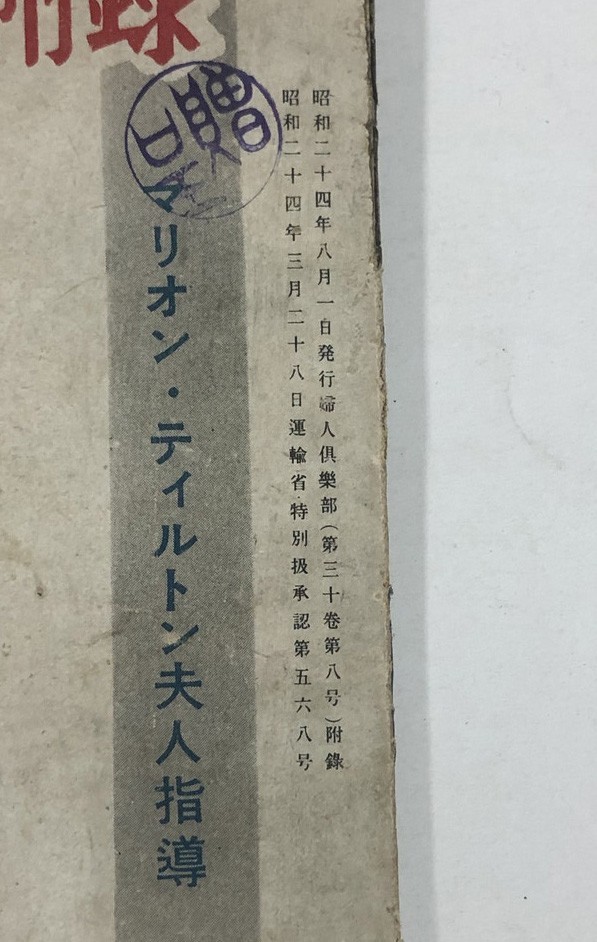 附録
昭和二十四年八月一日発行婦人倶樂部(第三十卷第八号)附錄
昭和二十四年三月二十八日運輸省特別扱承認第五六八号
贈
マリオン・ティルトン夫人指導